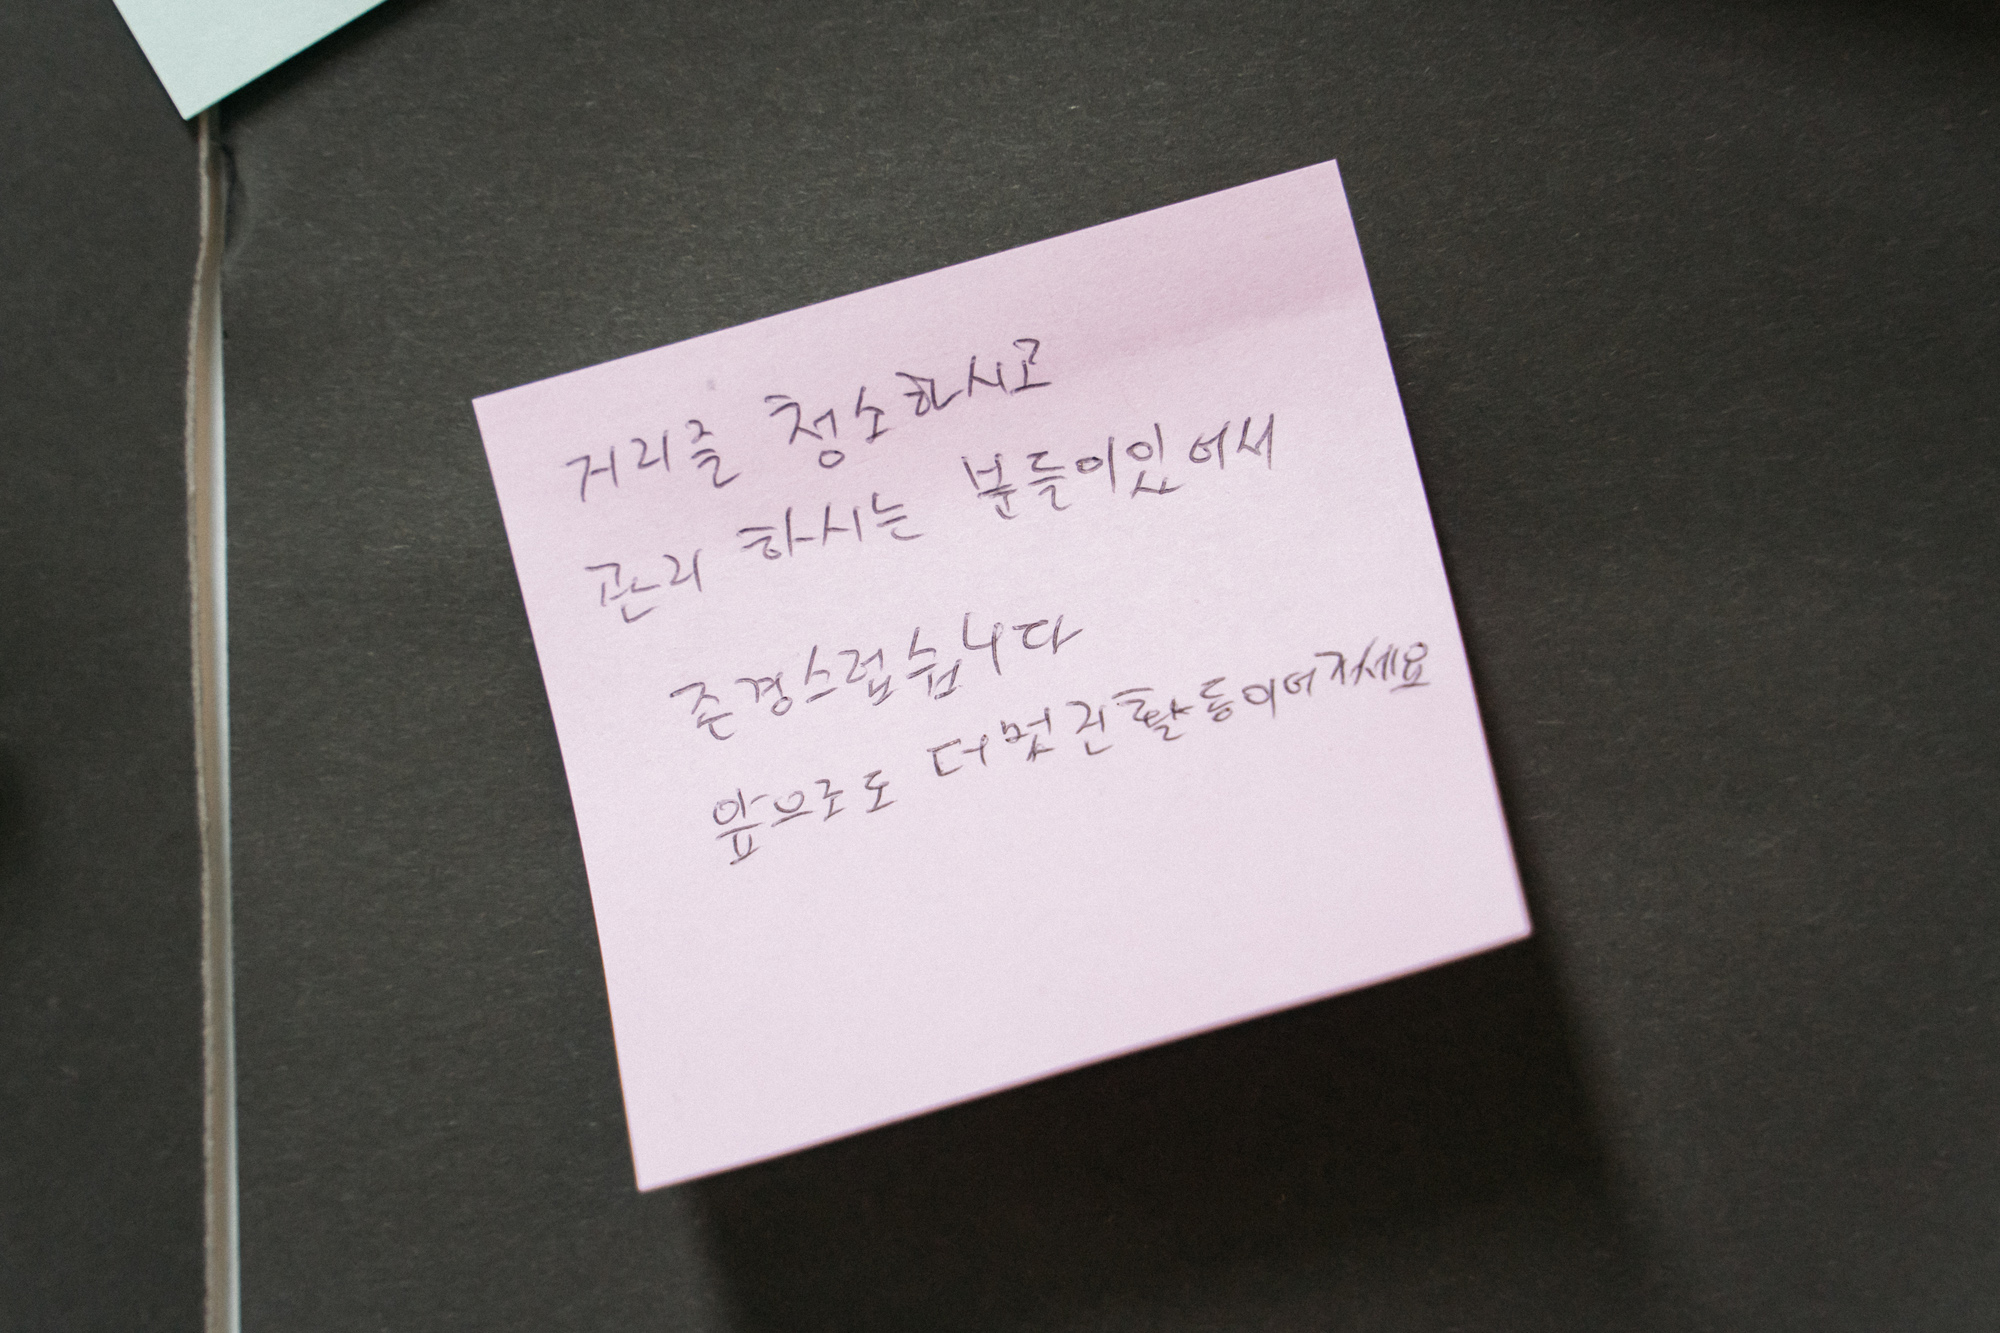 거리를 청소하시고
관리 하시는 분들이있어서
존경스럽습니다
앞으로도 더멋진활동이어가세요